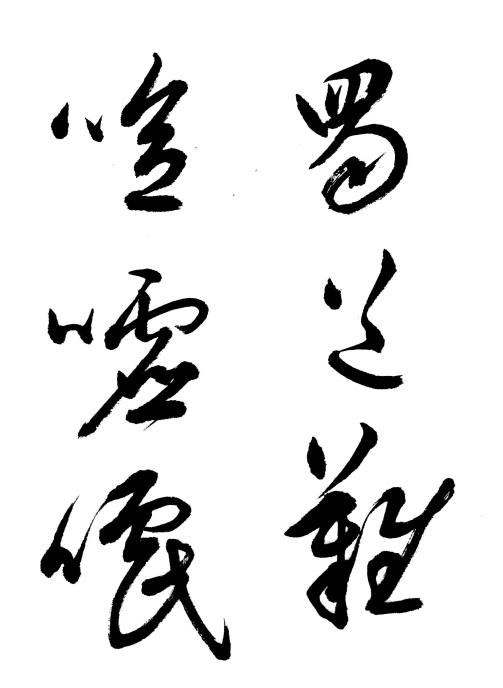 蜀道難
噫嘘嚱